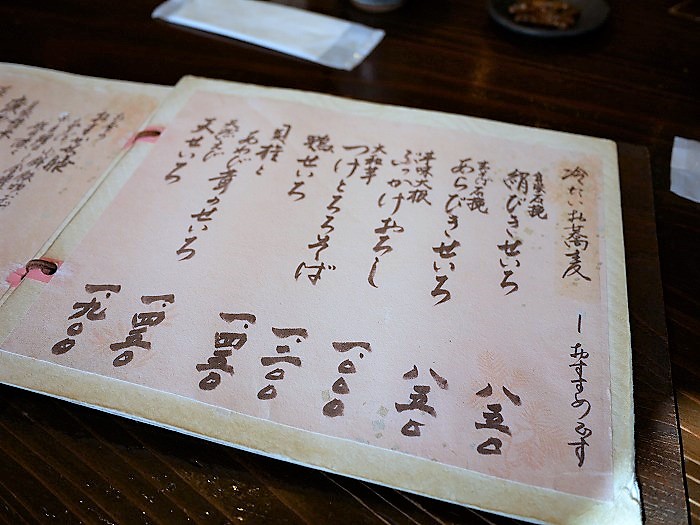 冷たいお蕎麦
ーおすすめです
自家石挽
絹びきせいろ 八五〇
素朴石挽
あらびきせいろ 八五〇
辛味大根
ぶっかけおろし 一、〇〇〇
大和芋
つけとろろそば 一、二〇〇
鴨せいろ 一、四五〇
貝柱と
あおじ茸のせいろ 一、四五〇
天然えび
天せいろ 一、九〇〇